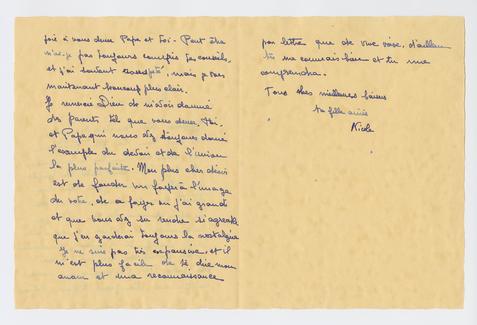 joie à vous deux Papa et toi. Peut être
n'ai-je pas toujours compris tes conseils,
et j'ai souvent, mais je vois
maintenant beaucoup plus clair.
Je remercie Dieu de m'avoir donné
des parents tel que vous deux, toi,
et Papa qui nous avez toujours donné
l'exemple du devoir et de l'union
la plus parfaite. Mon plus cher désir
est de fonder un foyer à l'image
du votre, de ce foyer où j'ai grandi
et que vous avez su rendre si agréable
que j'en garderai toujours la nostalgie
Je ne suis pas très expansive, et il
m'est plus facile de te dire mon
amour et ma reconnaissance
par lettre que de vive voix, d'ailleurs
tu me connais bien et tu me
comprendras.
Tous mes meilleurs baisers
ta fille aînée
Nicole